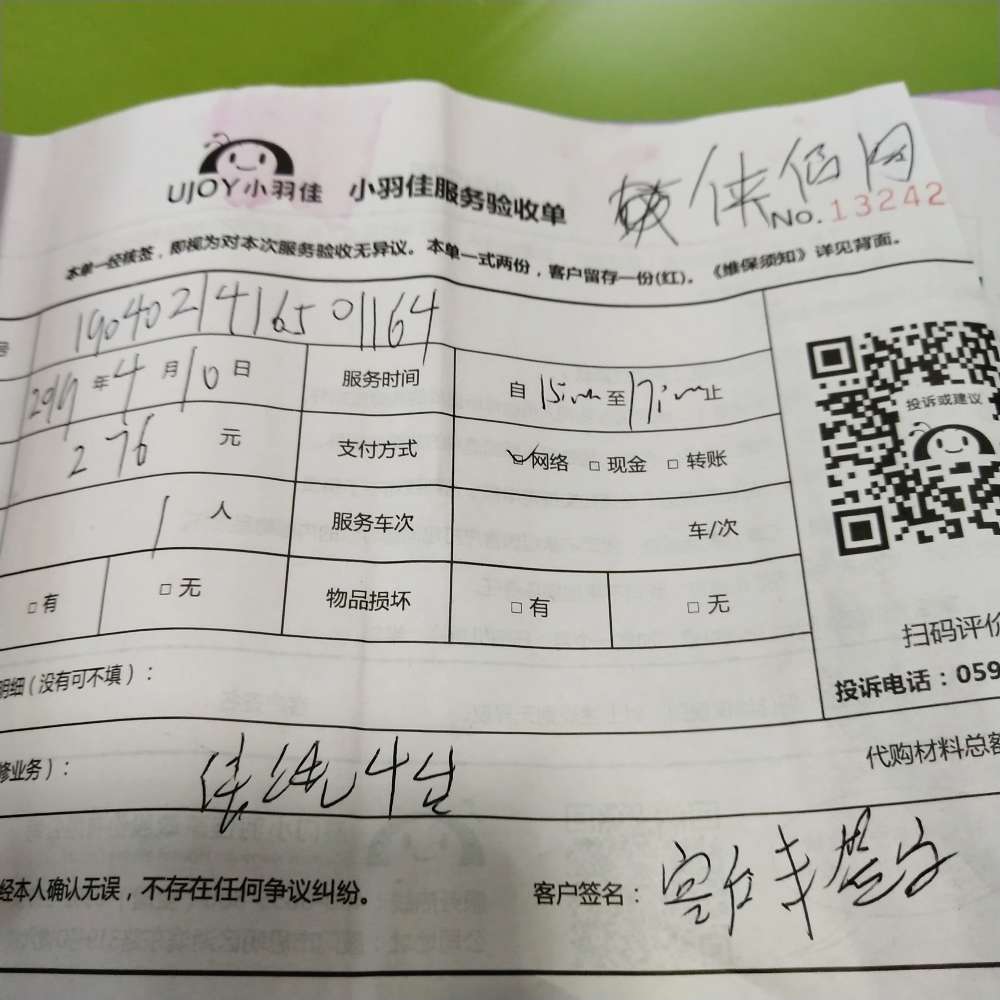 UJOY小羽佳 小羽佳服务验收单
No.13242
本单一经核签，即视为对本次服务验收无异议。本单一式两份，客户留存一份(红)。《维保须知》详见背面。
号 1904021416501164
2019年4月10日 服务时间 自 至 止
276 元 支付方式 ☑网络 □现金 □转账
1 人 服务车次 车/次
□有 □无 物品损坏 □有 □无
投诉或建议
扫码评价
投诉电话：059
明细（没有可不填）：
代购材料总客
修业务）：
经本人确认无误，不存在任何争议纠纷。 客户签名：